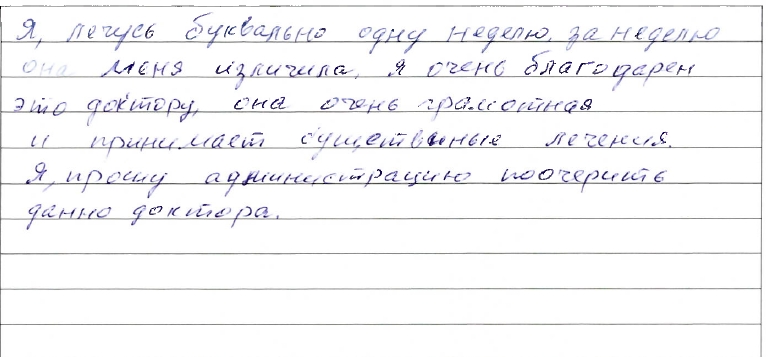 Я, лечусь буквально одну неделю, за неделю
она меня изличила, я очень благодарен
это доктору, она очень грамотная
и принимает существиные лечения.
Я, прошу администрацию поочерить
данно доктора.